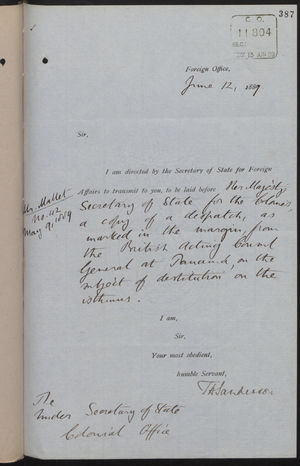 387
C. O.
11804
Foreign Office,
June 12, 1889.
Sir,
I am directed by the Secretary of State for Foreign
Affairs to transmit to you, to be laid before Her Majesty's
Secretary of State for the Colonies,
a copy of a despatch, as
marked in the margin, from
the British Acting Consul
General at Panama, on the
subject of destitution on the
isthmus.
Mr Mallet
No. 42
May 9. 1889
I am,
Sir,
Your most obedient,
humble Servant,
T H Sanderson
The
Under Secretary of State
Colonial Office